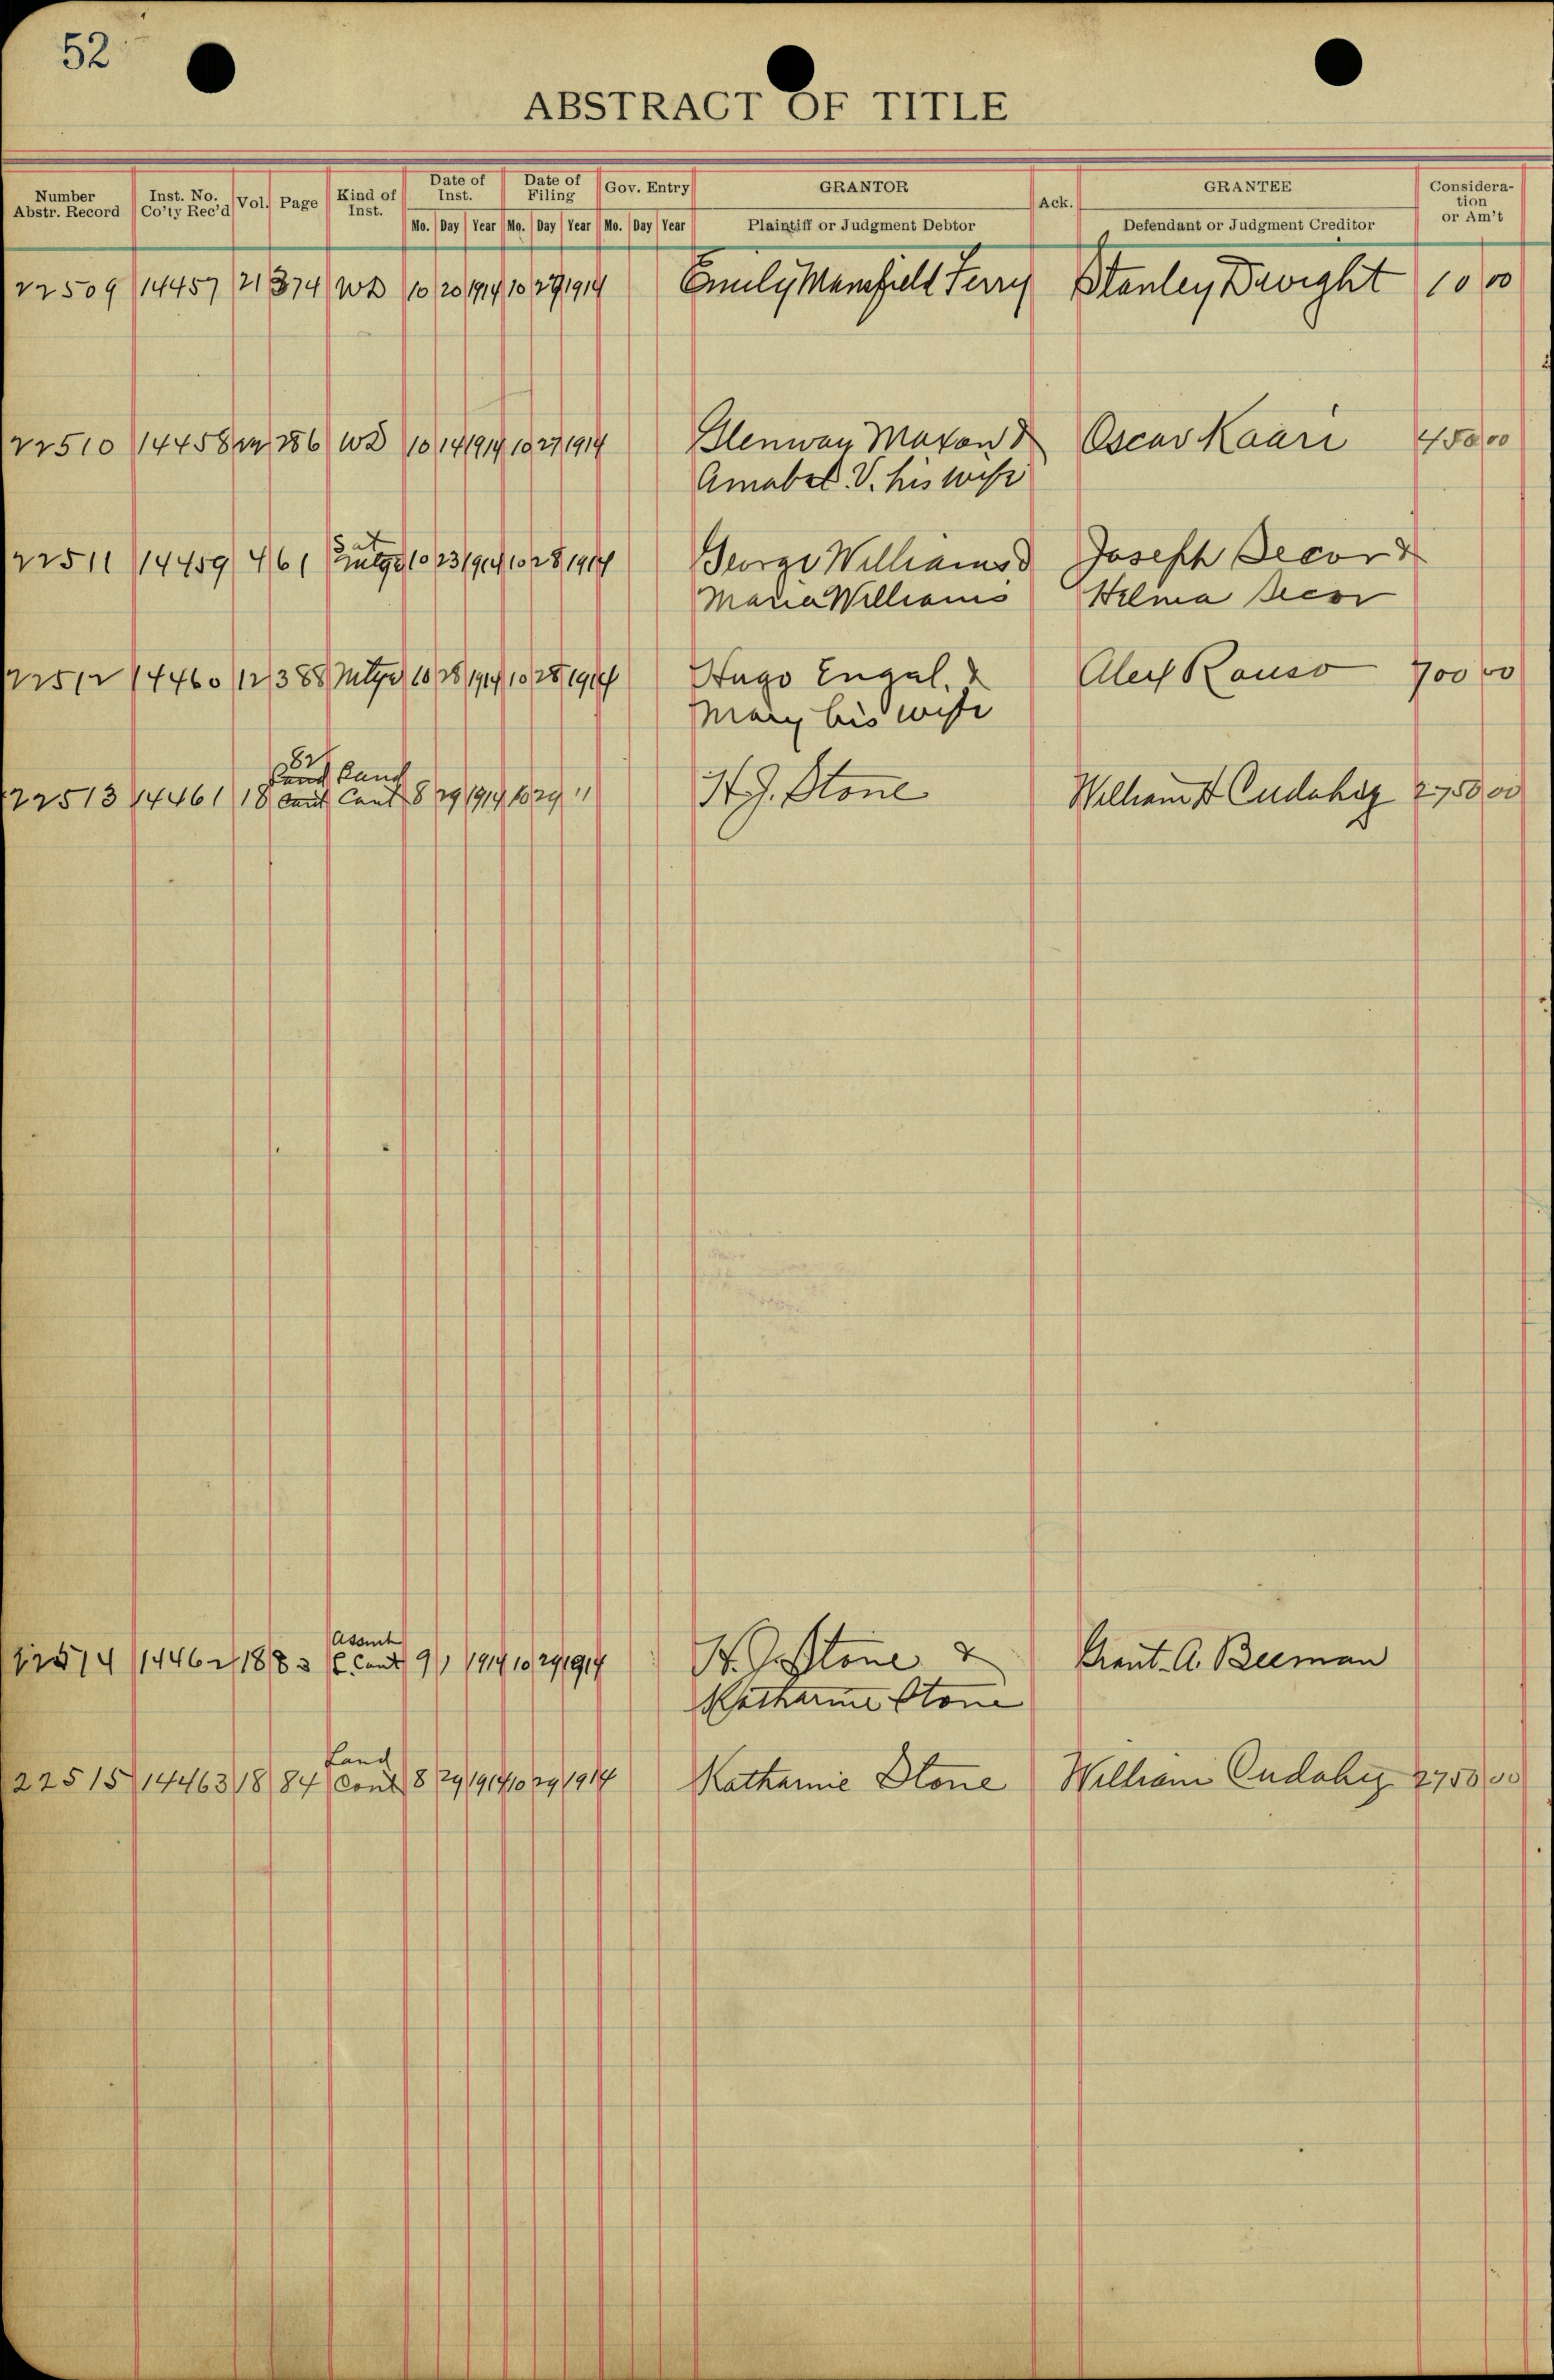 52
ABSTRACT OF TITLE
Number Abstr. Record Inst. No. Co'ty Rec'd Vol. Page Kind of Inst. Date of Inst. Date of Filing Gov. Entry GRANTOR Ack. GRANTEE Consideration or Am't
Mo. Day Year Mo. Day Year Mo. Day Year Plaintiff or Judgment Debtor Defendant or Judgment Creditor
22509 14457 21 374 WD 10 20 1914 10 27 1914 Emily Mansfield Terry Stanley Dwight 10 00
22510 14458 22 286 WD 10 14 1914 10 27 1914 Glenway Maxon & Oscar Kaari 450 00
Amabel V. his wife
Sat
22511 14459 4 61 mtge 10 23 1914 10 28 1914 George Williams & Joseph Secor &
Maria Williams Helma Secor
22512 14460 12 388 Mtge 10 28 1914 10 28 1914 Hugo Engel, & Alex Rauso 700 00
Mary his wife
82
Land Land
22513 14461 18 Cont Cont 8 29 1914 10 29 " H. J. Stone William Cudahy 2750 00
Assmt
22514 14462 18 83 L. Cont 9 1 1914 10 29 1914 H. J. Stone & Grant A. Beeman
Katharine Stone
Land
22515 14463 18 84 Cont 8 29 1914 10 29 1914 Katharine Stone William Cudahy 2750 00